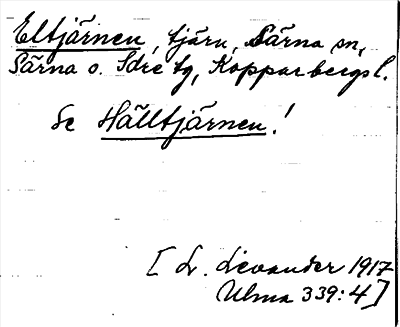 Eltjärnen, tjärn, Särna sn,
Särna o. Idre tg, Kopparbergs l.
Se Hälltjärnen!
[L. Levander 1917
Ulma 339:4]